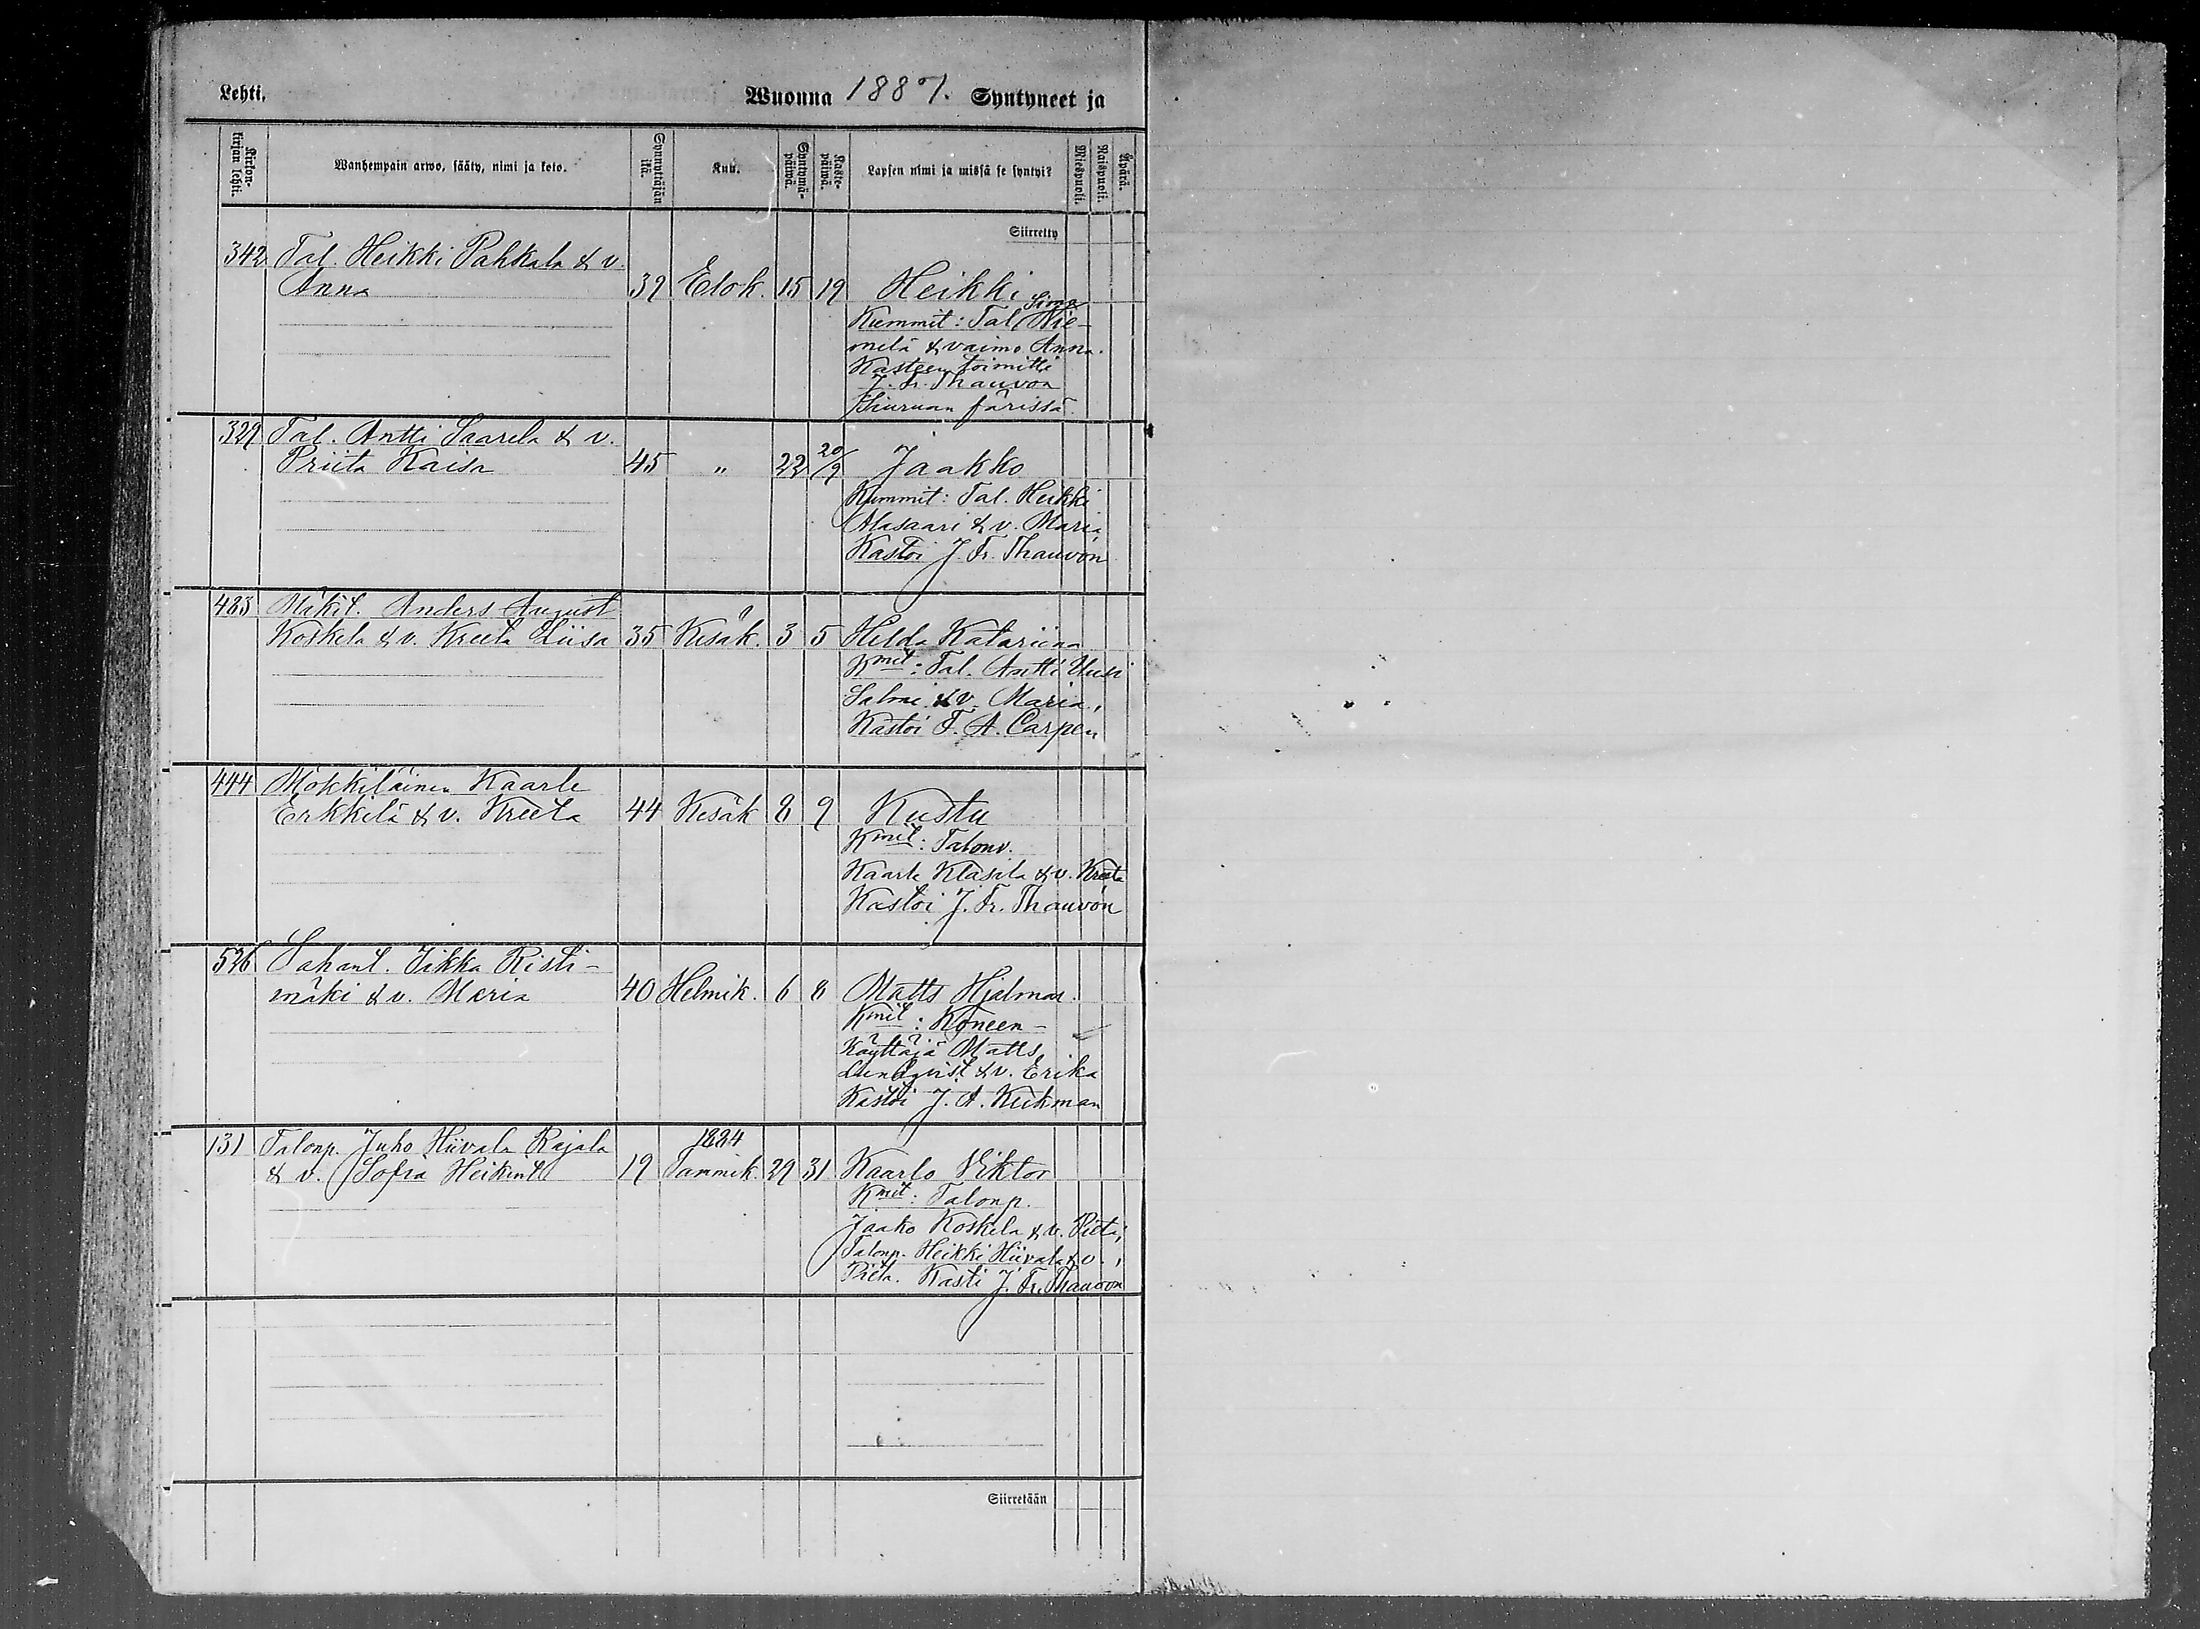 Lehti.
Wuonna 1887. Syntyneet ja
Kirkon-kirjan lehti.
Wanhempain arwo, sääty, nimi ja koto.
Synnyttäjän ikä.
Kuu.
Syntymä-päiwä.
Kaste-päiwä.
Lapsen nimi ja missä se syntyi?
Miespuoli.
Naispuoli.
Äpärä.
Siirretty
342 Tal. Heikki Pahkala & v.
Anna 39 Elok. 15 19 Heikki
Kummit: Tal. Simo Nie-
melä & vaimo Anna.
Kasteen toimitti
J. Fr. Thauvón
Siuruan färissä
329 Tal. Antti Saarela & v.
Priita Kaisa 45 " 22 20/9 Jaakko
Kummit: Tal. Heikki
Alasaari & v. Maria,
Kastoi J. Fr. Thauvón
483 Mäkit. Anders August
Koskela & v. Kreeta Liisa 35 Kesäk. 3 5 Hilda Katariina
Kmit: Tal. Antti Uusi
Salmi & v. Maria,
Kastoi F. A. Carpen
444 Mökkiläinen Kaarle
Erkkilä & v. Kreeta 44 Kesäk 8 9 Kustu
Kmit: Talonp.
Kaarle Klasila & v. Kreeta
Kastoi J. Fr. Thauvón
526 Sahant. Iikka Risti-
mäki & v. Maria 40 Helmik. 6 8 Matts Hjalmar.
Kmit: Koneen-
Käyttäjä Matts
Lundqvist & v. Erika
Kastoi J. A. Keckman
131 Talonp. Juho Hiivala Rajala 1884
& v. Sofia Heikint 19 Tammik. 29 31 Kaarlo Viktor
Kmit: Talonp.
Jaako Koskela & v. Pieta,
Talonp. Heikki Hiivala & v.,
Pieta. Kasti J. Fr. Thauvón
Siirretään